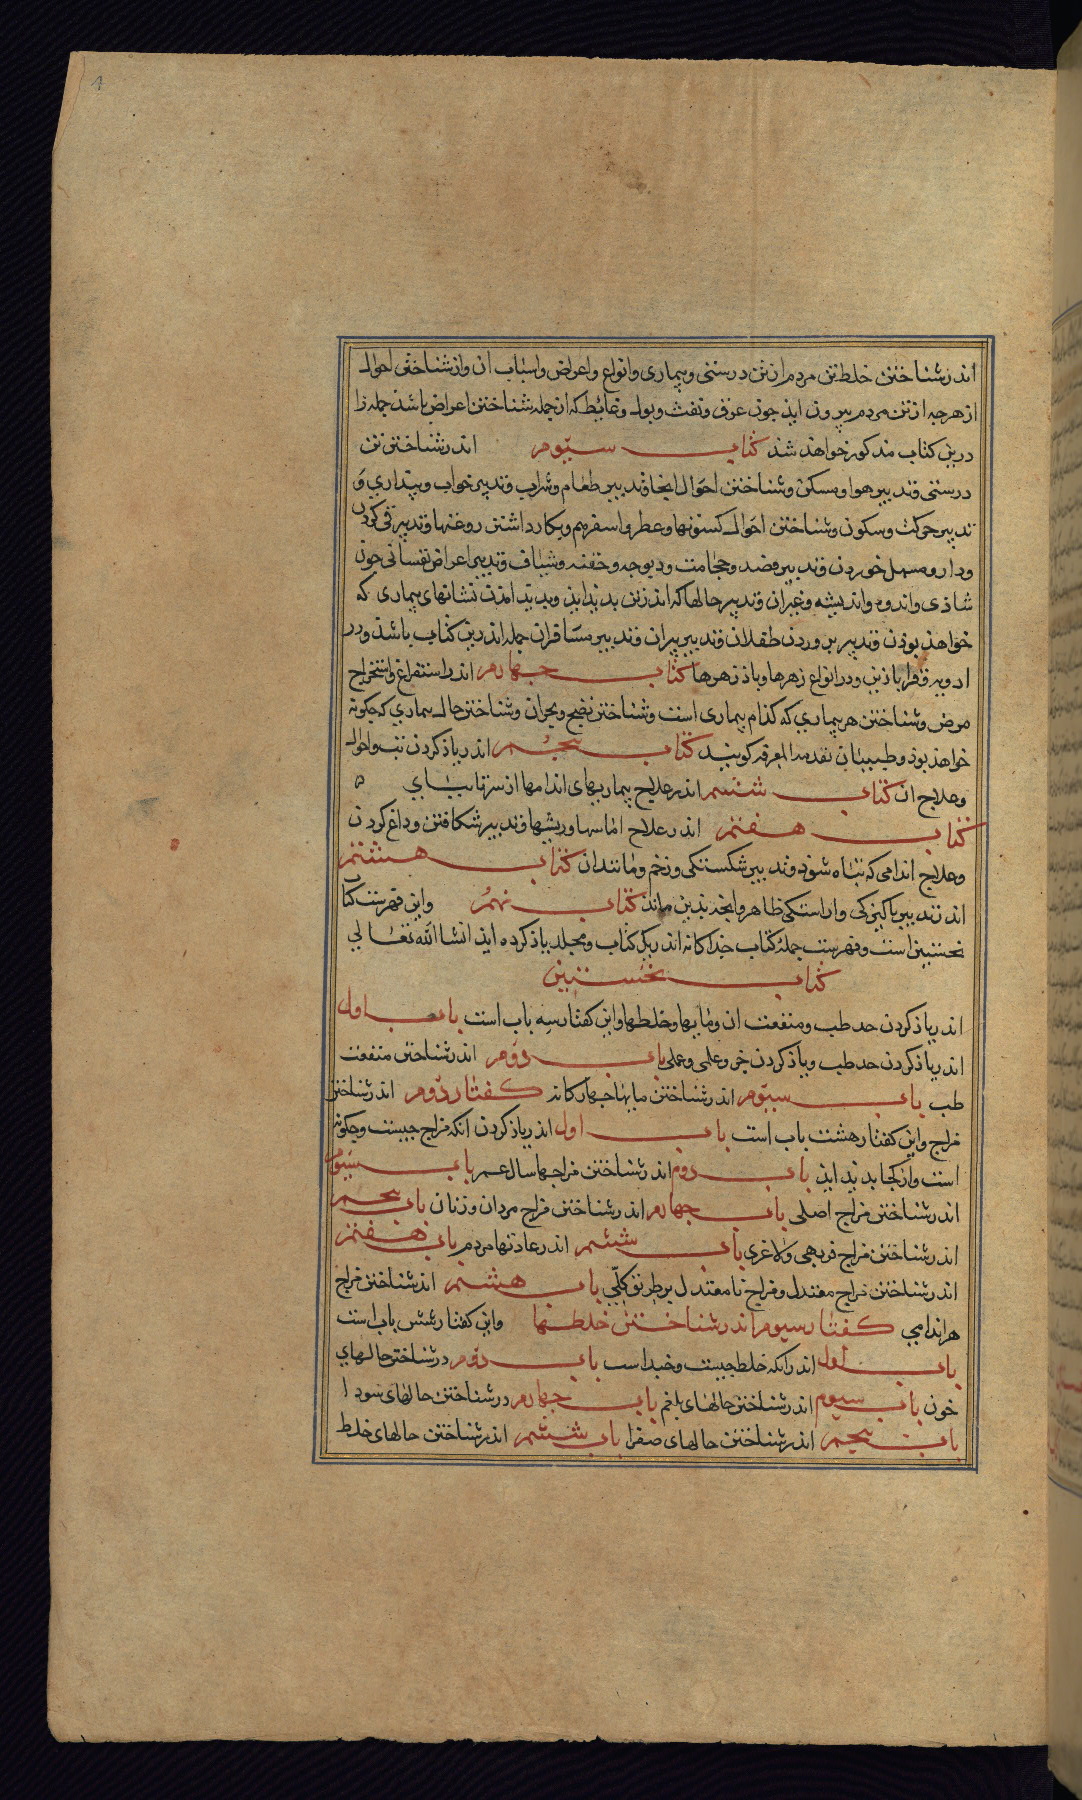 اندر شناختن خلط تن مردم از تن درستی و بیماری و انواع و اعراض و اسباب آن و از شناختن احوال
از هرچه از تن مردم بیرون آید چون عرق و نفث و بول و غایط که از جمله شناختن اعراض باشد جمله را
درین کتاب مذکور خواهد شد کتاب سیوم اندر شناختن تن
درستی و تدبیر هوا و مسکن و شناختن احوال آبها و تدبیر طعام و شراب و تدبیر خواب و بیداری و
تدبیر حرکت و سکون و شناختن احوال کسوتها و عطر و اسفرهم و بکار داشتن روغنها و تدبیر قی کردن
و دارو مسهل خوردن و تدبیر فصد و حجامت و دیوچه و حقنه و شیاف و تدبیر اعراض نفسانی چون
شاذی و اندوه و اندیشه و غیر آن و تدبیر حالها که اندر تن بدیذ آیذ و بدیذ آمذن نشانهای بیماری که
خواهذ بوذن و تدبیر بروردن طفلان و تدبیر پیران و تدبیر مسافران جمله اندرین کتاب باشذ و در
ادویه قرفاباذین و در انواع زهرها و باذزهرها کتاب چهارم اندر استفراغ و استخراج
مرض و شناختن هر بیماری که کذام بیماری است و شناختن نضج و بحران و شناختن حال بیماری که چکونه
خواهذ بوذ و طبیبان تقدمة المعرفه کویند کتاب پنجم اندر یاذ کردن تب و احوال
و علاج آن کتاب ششم اندر علاج بیماریهای اندامها از سر تا بای ۵
کتاب هفتم اندر علاج آماسها و ریشها و تدبیر شکافتن و داغ کردن
و علاج اندامی که تباه شوذ و تدبیر شکستکی و زخم و مانند آن کتاب هشتم
اندر تدبیر پاکیزکی و آراستکی ظاهر و انچه بذین ماند کتاب نهم و این فهرست کتاب
نخستین است و فهرست جمله کتاب جذاکانه اندر یک کتاب و مجلد یاذ کرده آیذ انشا الله تعالی
کتاب نخستین
اندر یاذ کردن حد طب و منفعت آن و مایها و خلطها و این کفتار سه باب است باب اول
اندر یاذ کردن حد طب و یاذ کردن جز و علمی و عملی باب دوم اندر شناختن منفعت
طب باب سیوم اندر شناختن مایها چهارکانه کفتار دوم اندر شناختن
مزاج و این کفتار هشت باب است باب اول اندر یاذ کردن انکه مزاج چیست و چکونه
است و از کجا بدیذ آیذ باب دوم اندر شناختن مزاجها سال عمر باب سیوم
اندر شناختن مزاج اصلی باب چهارم اندر شناختن مزاج مردان و زنان باب پنجم
اندر شناختن مزاج فربهی و لاغری باب ششم اندر عادتها مردم باب هفتم
اندر شناختن مزاج معتدل و مزاج نامعتدل بر طریق کلی باب هشتم اندر شناختن مزاج
هر اندامی کفتار سیوم اندر شناختن خلطها و این کفتار شش باب است
باب اول اندر آنکه خلط چیست و چند است باب دوم در شناختن حالهای
خون باب سیوم اندر شناختن حالهای بلغم باب چهارم در شناختن حالهای سودا
باب پنجم اندر شناختن حالهای صفرا باب ششم اندر شناختن حالهای خلط